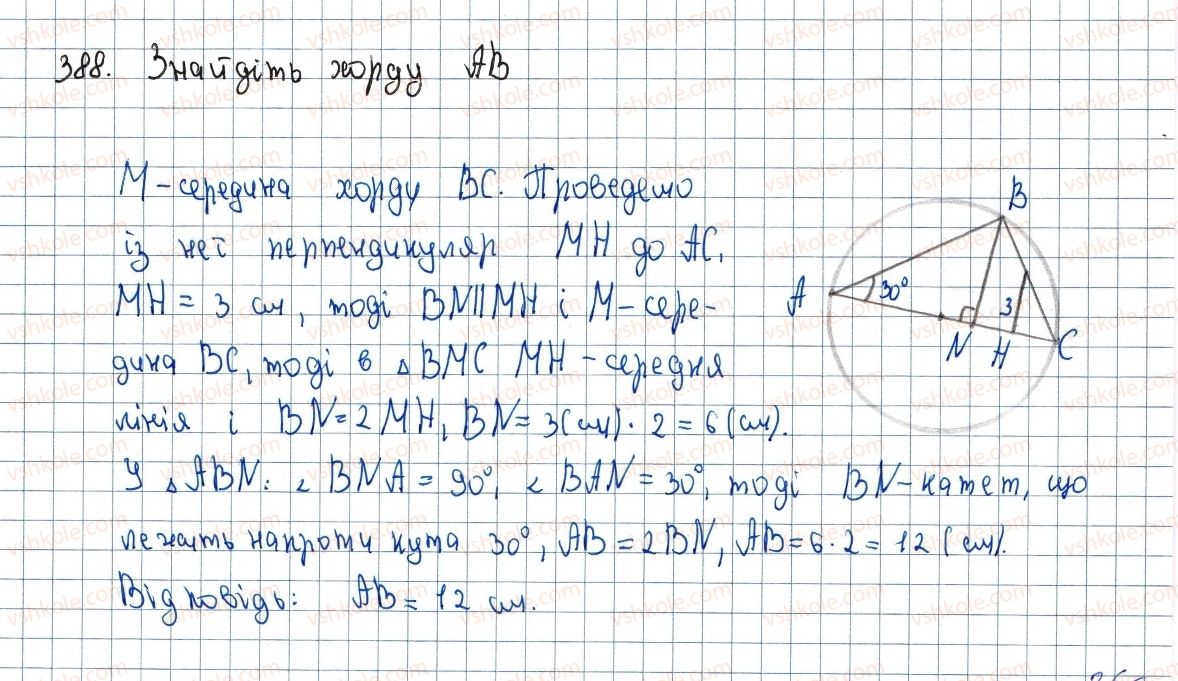 388. Знайдіть хорду АВ
М-середина хорду ВС. Проведемо
із неї перпендикуляр МН до АС.
МН = 3 см, тоді BN||МН і М-сере-
дина ВС, тоді в △ВМС МН - середня
лінія і BN=2МН, BN= 3(см)·2=6(см).
У △ABN: ∠BNA = 90°, ∠BAN=30°, тоді BN-катет, що
лежить напроти кута 30°, АВ=2BN, АВ=6·2=12 (см).
Відповідь: АВ=12 см.
B
A 30° 3
N H C
vshkole.com